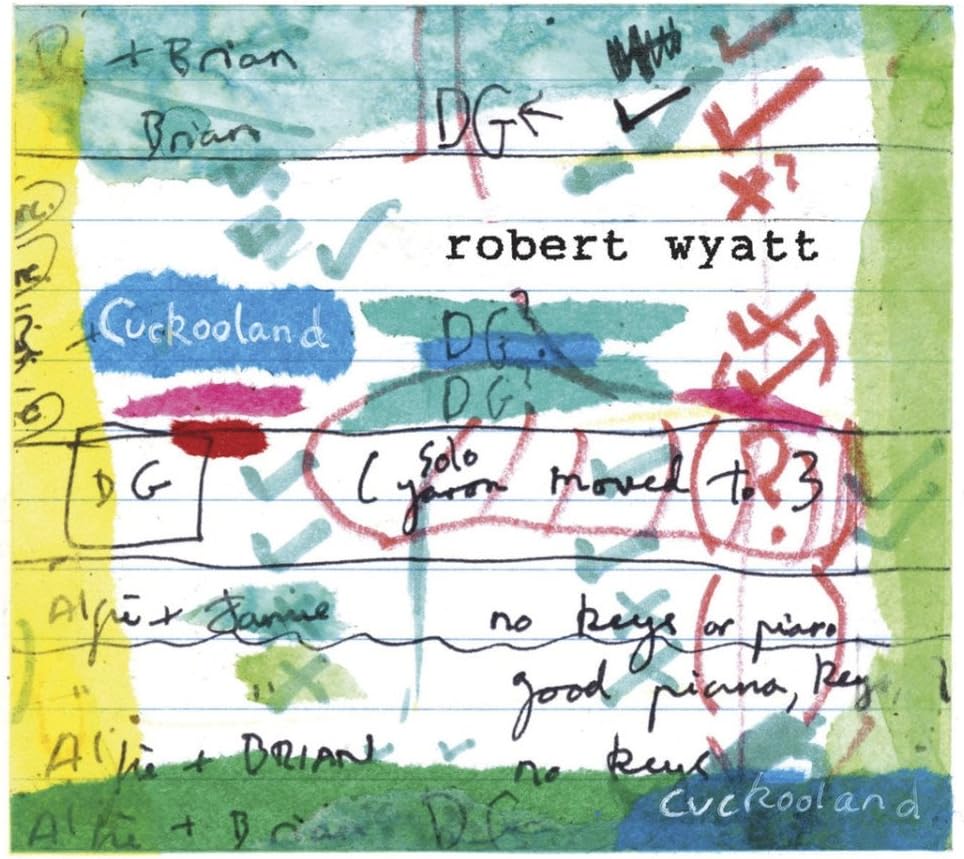 + Brian
Brian DG
?
robert wyatt
Cuckooland DG?
DG?
DG (solo yaron moved to ?)
Alfie + Jamie no keys or piano
" " good piano, key
Alfie + BRIAN no keys
cuckooland
Alfie + Brian DG